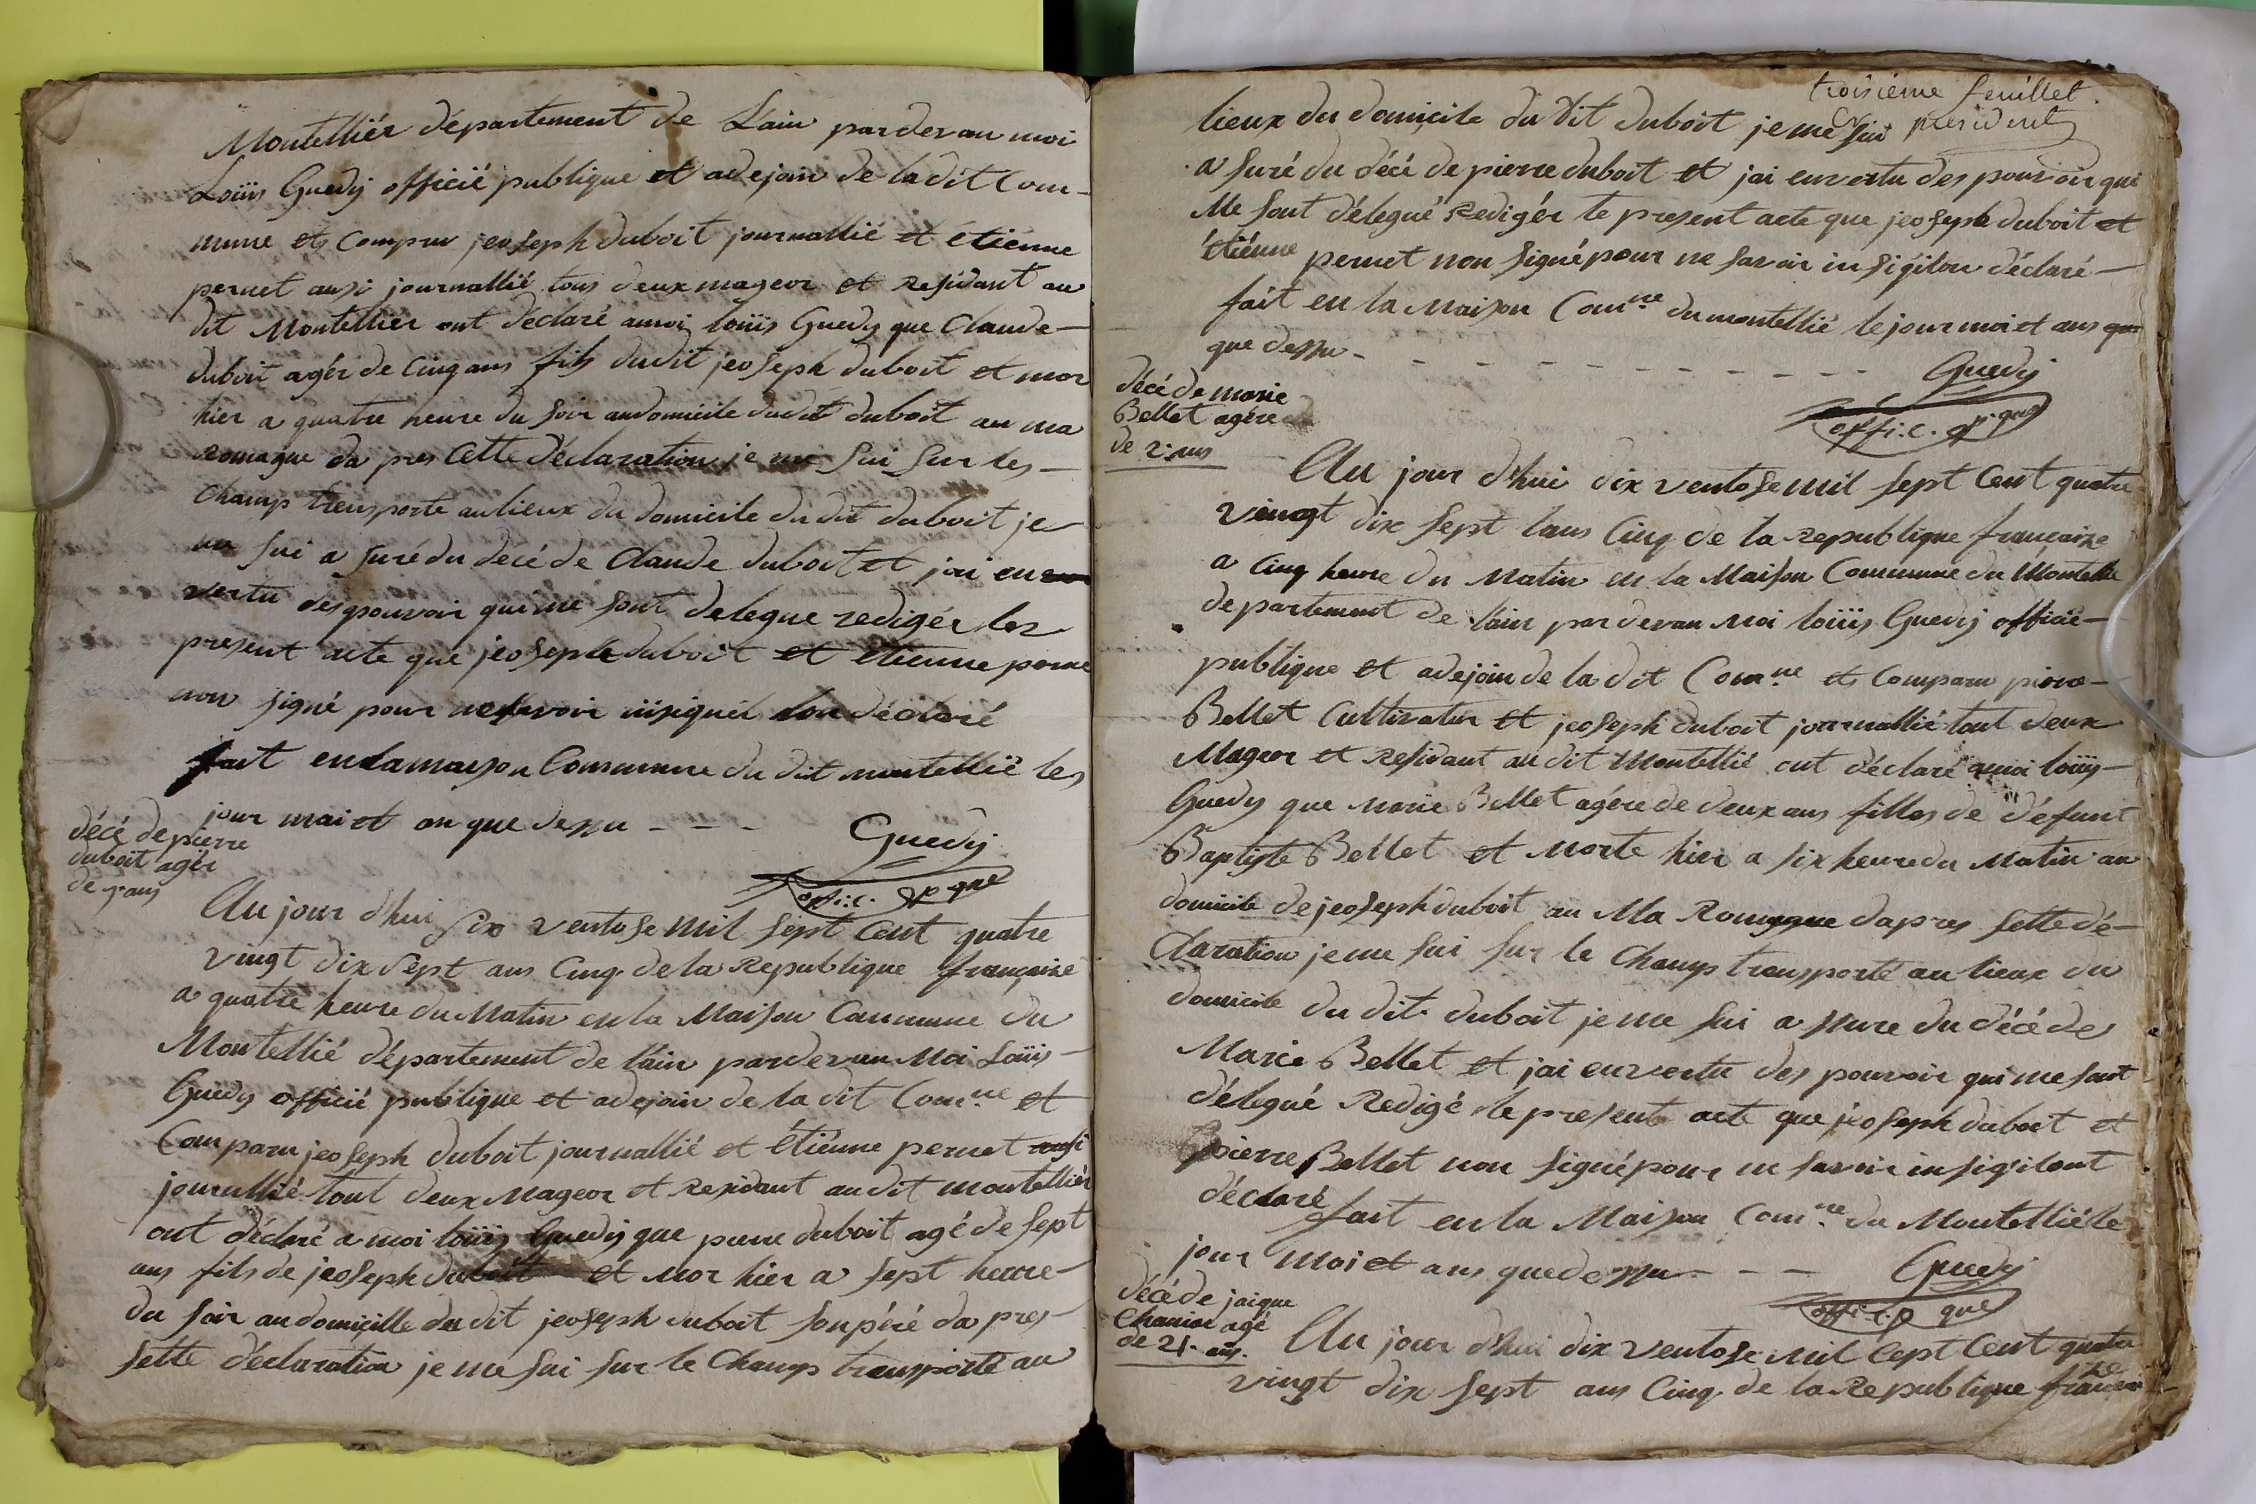 Montelliér département de Lain parderan moi
Loüis Guedy officié publique et adejoin de la dit Com-
mune ets Comparu jeoseph duboit journallié et étiénne
pernet ausi journallié tous deux mageor et Résidant au
dit Montellier ont déclaré amoi loüis Guedy que Claude-
duboit agér de Cinq ans fils dudit jeoseph duboit et mor
hier a quatre heure du soir audomicile dudit duboit au ma
Romagne da pres Cette déclaration je me sui sur les-
Champ transporte aulieux du domicile du dit duboit je
me sui a suré du decé de Claude duboit et jai en
vertu des pouvoir qui me sont delegue redigér les
present acte que jeoseph duboit et étienne perne
non signé pour ne savoir déclaré
fait en la maison Commune du dit montellié les
jour moi et an que dessu - - -
Guedy
offi.c. p.que
décé de pierre
duboit agér
de 7 ans
Au jour d'hui dix ventose mil sept Cent quatre
vingt dix sept ans Cinq de la Republique françaixe
a quatre heure du Matin en la Maison Commune du
Montellié département de lain parderan Moi Loüis-
Guedy officié publique et adejoin de la dit Com.ne et
Comparu jeoseph duboit journallié et étiénne pernet ausi
journallié tout deux Mageor et Rexidant audit montelliér
ont déclaré a moi loüis Guedy que pierre duboit agé de sept
ans fils de jeoseph duboit et Mor hier a sept heure-
du soir au domiçille du dit jeoseph duboit son péré da pres-
sette déclaration je me sui sur le Champ transporte au
troisiéme feuillet
président
lieux du domicile du dit duboit je me sui
a suré du décé de pierre duboit et jai en vertu des pouvoir qui
Me sont délegué Redigér le present acte que jeoseph duboit et
étiénne pernet non signé pour ne savoir insigilon déclaré-
fait en la Maison Com.ne du montellié le jour moi et ans que
que dessu - - - - - - - - - -
Guedy
offi.c. p.que
décé de marie
Bellet agére
de 2 ans
Au jour d'hui dix ventose mil sept Cent quatre
vingt dix sept lans Cinq de la republique françaixe
a Cinq heure du Matin en la Maison Commune du Montellié
departement de lain parderan Moi loüis Guedy officié-
publique et adejoin de la dit Com.ne ets Comparu pierre-
Bellet Cultivateur et jeoseph duboit journallié tout deux
Mageor et Residant au dit Montellié ont déclaré amoi loüis-
Guedy que Marie Bellet agére de deux ans filles de défunt
Baptiste Bellet et Morte hier a six heure du Matin au
domicile de jeoseph duboit au Ma Romagne dapres sette dé-
claration je me sui sur le Champ transporté au lieux du
domicile du dit duboit je me sui a ssure du décé de
Marie Bellet et jai en vertu des pouvoir qui me sont
délegué Redigé le present acte que jeoseph duboit et
pierre Bellet non signé pour ne savoir insigilont
déclaré fait en la Maison Com.ne du Montellié le
jour Moi et ans que dessu - - -
Guedy
offi.c.p que
décé de jaique
Chanion agé
de 21. ans.
Au jour d'hui dix ventose mil Cept Cent quatre
vingt dix sept ans Cinq de la Republique françaixe